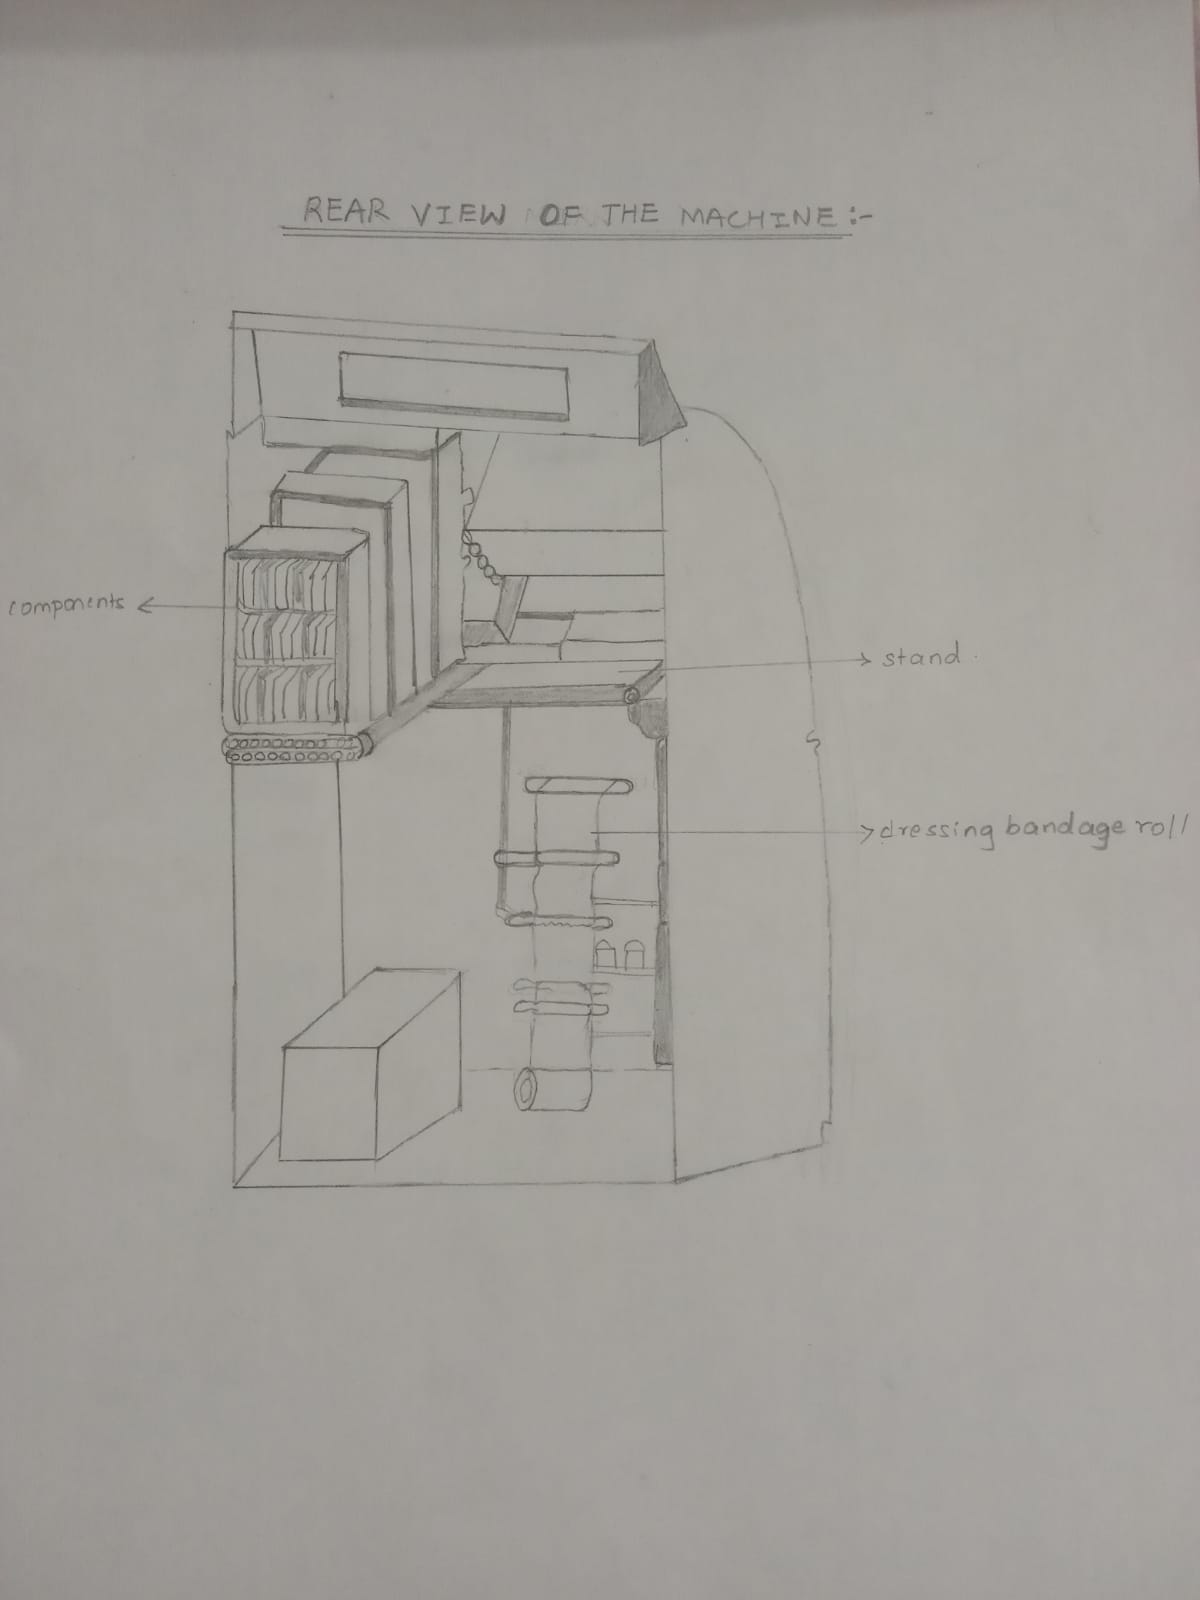 REAR VIEW OF THE MACHINE:-
components
stand
dressing bandage roll